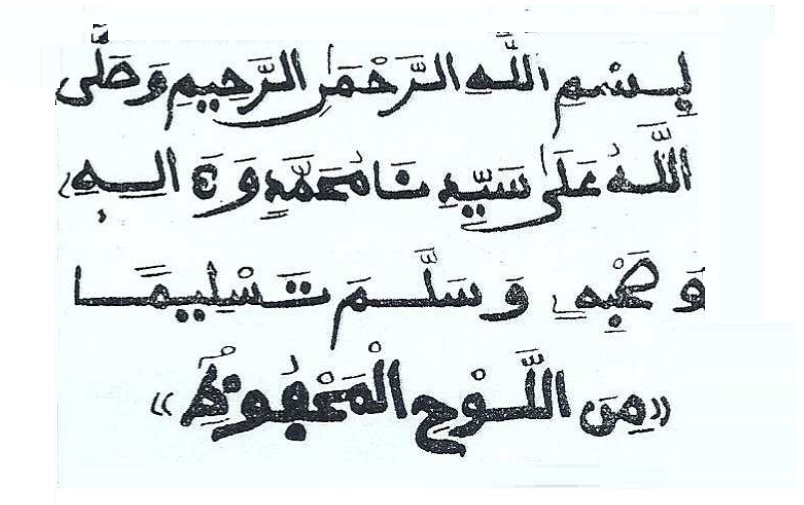 بِسْمِ اللَّهِ الرَّحْمَٰنِ الرَّحِيمِ وَصَلَّى
اللَّهُ عَلَىٰ سَيِّدِنَا مُحَمَّدٍ وَءَالِهِ
وَصَحْبِهِ وَسَلَّمَ تَسْلِيمًا
«مِنَ اللَّوْحِ الْمَحْفُوظِ»